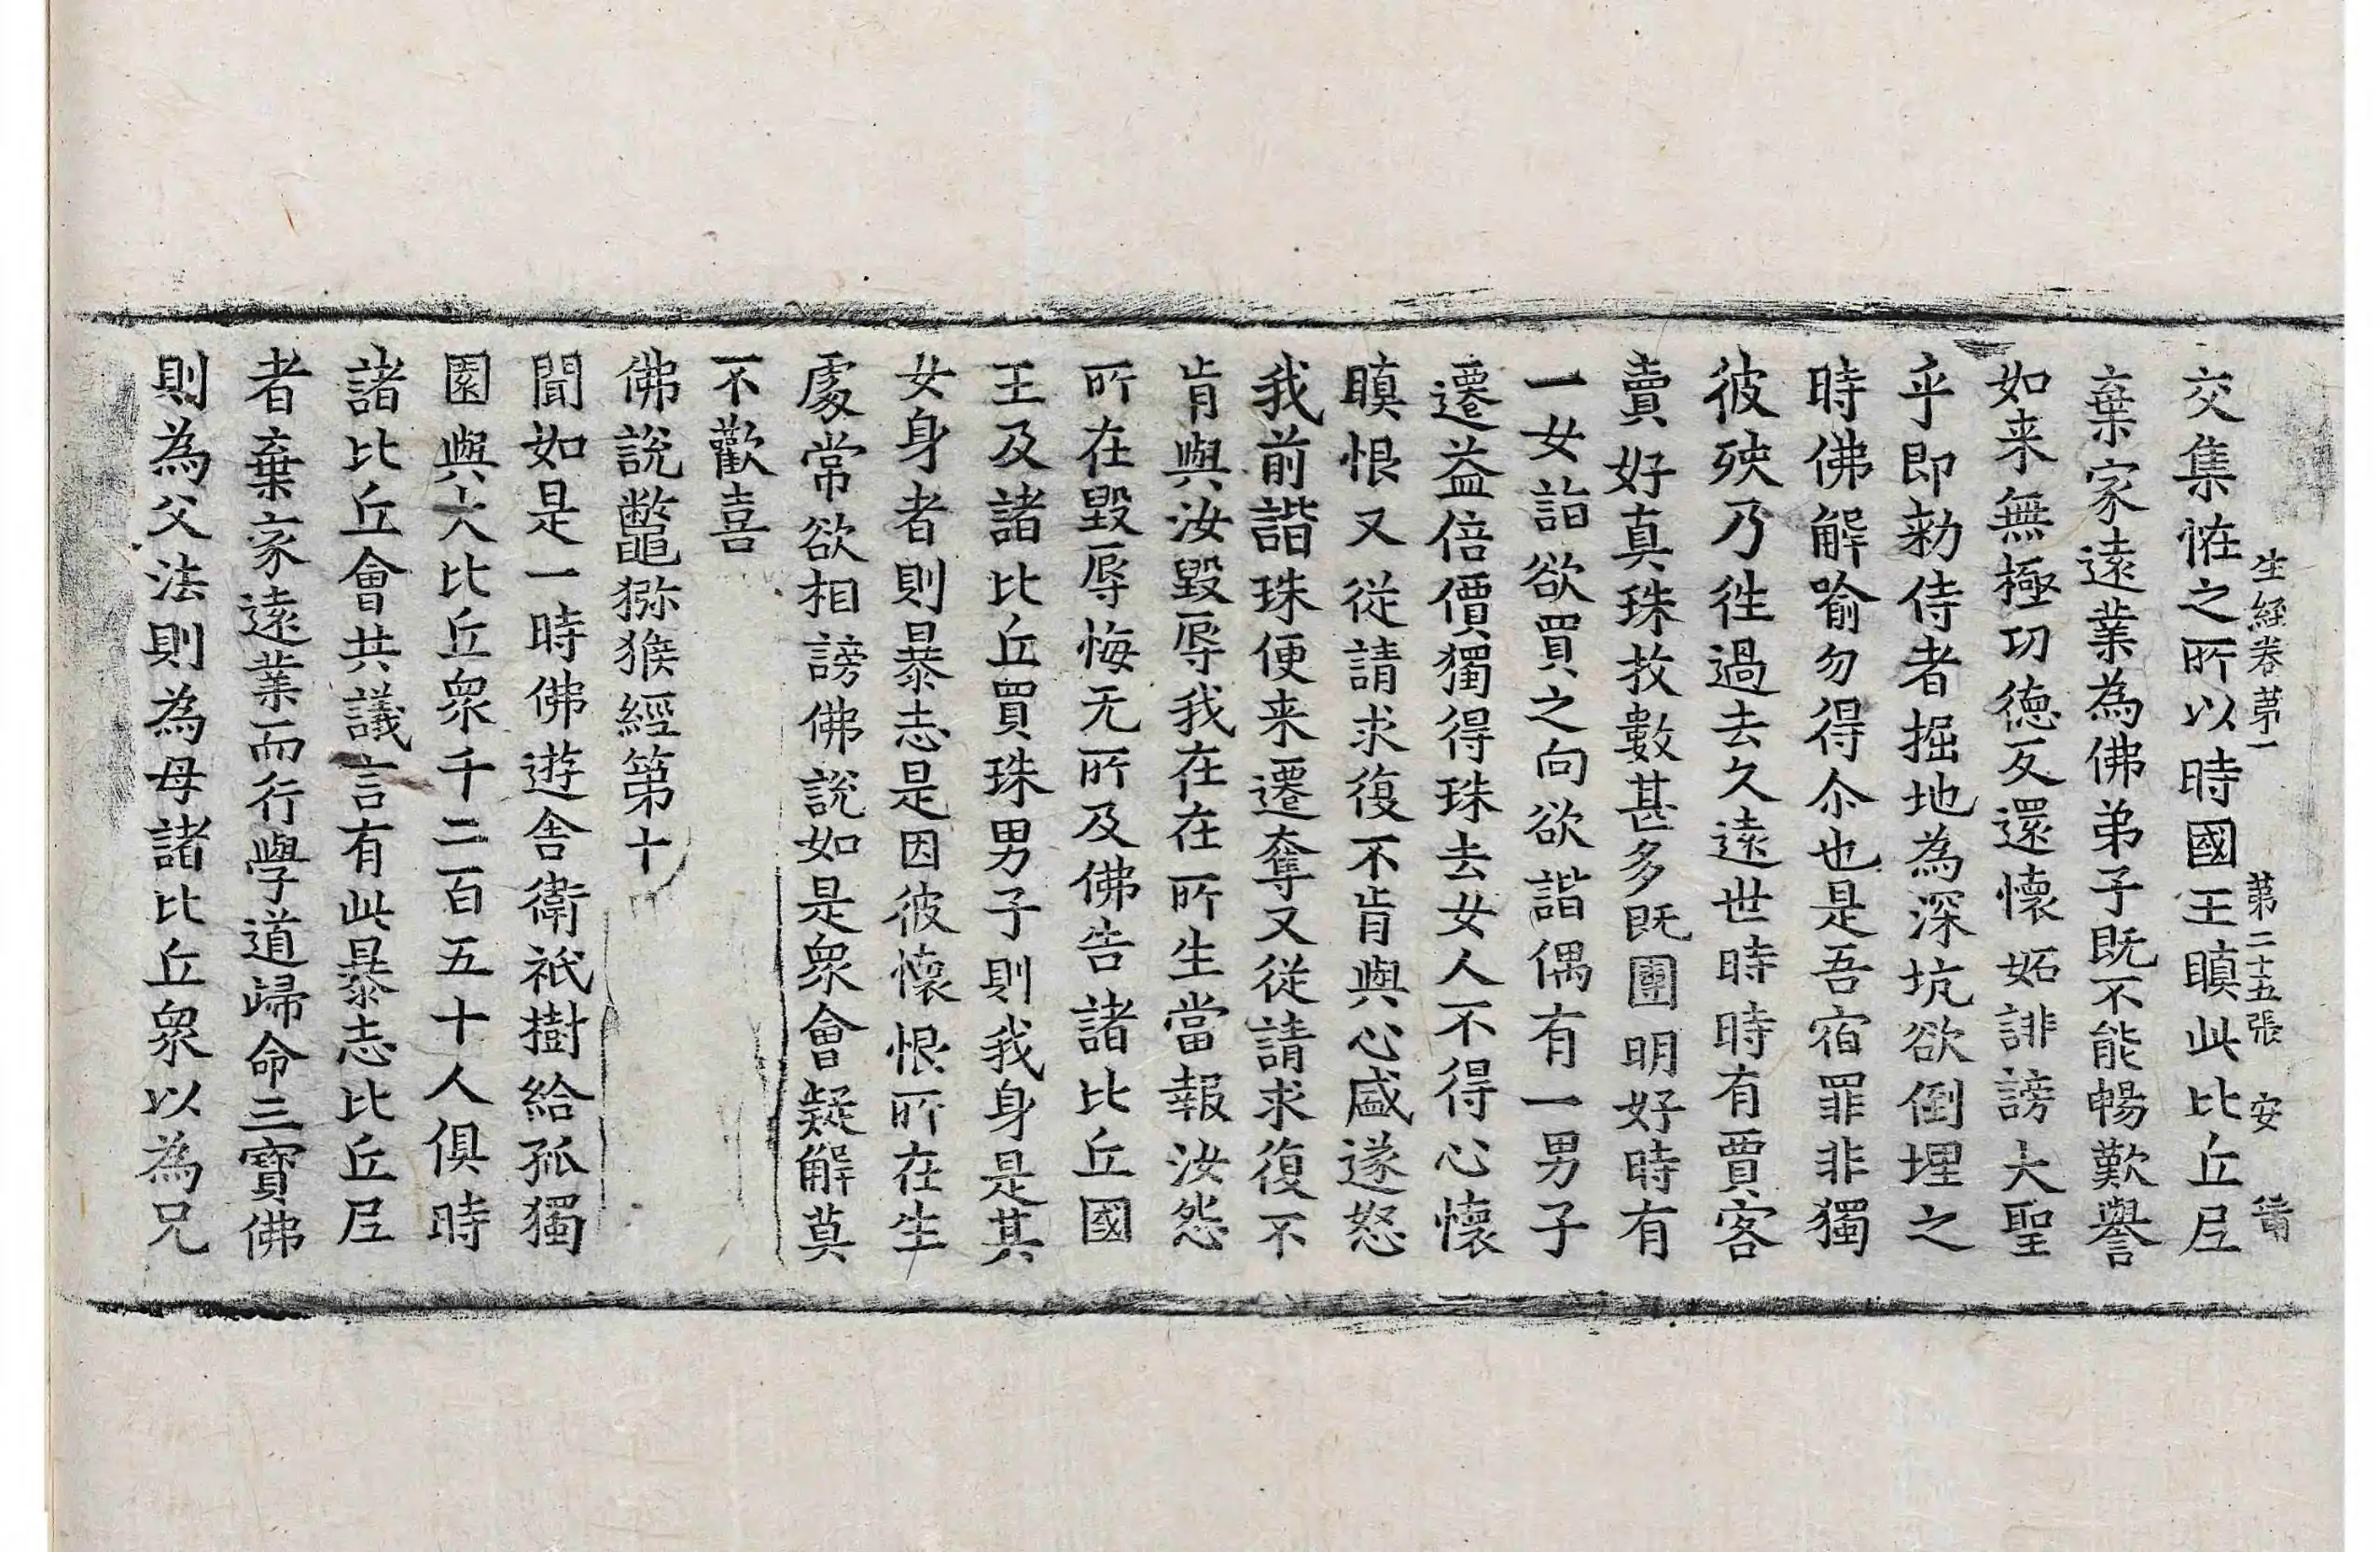 生經卷第一 第二十五張 安
交集恠之所以時國王瞋此比丘尼
棄家遠業為佛弟子既不能暢歎譽
如来無極功德反還懷妬誹謗大聖
乎即勑侍者掘地為深坑欲倒埋之
時佛解喻勿得尒也是吾宿罪非獨
彼殃乃徃過去久遠世時時有賈客
賣好真珠枚數甚多既團明好時有
一女詣欲買之向欲諧偶有一男子
遷益倍價獨得珠去女人不得心懷
瞋恨又從請求復不肯與心盛遂怒
我前諧珠便来遷奪又從請求復不
肯與汝毀辱我在在所生當報汝怨
所在毀辱悔无所及佛告諸比丘國
王及諸比丘買珠男子則我身是其
女身者則暴志是因彼懷恨所在生
處常欲相謗佛說如是衆會疑解莫
不歡喜
佛說鼈獼猴經第十
聞如是一時佛遊舍衛祇樹給孤獨
園與大比丘衆千二百五十人俱時
諸比丘會共議言有此暴志比丘尼
者棄家遠業而行學道歸命三寶佛
則為父法則為母諸比丘衆以為兄